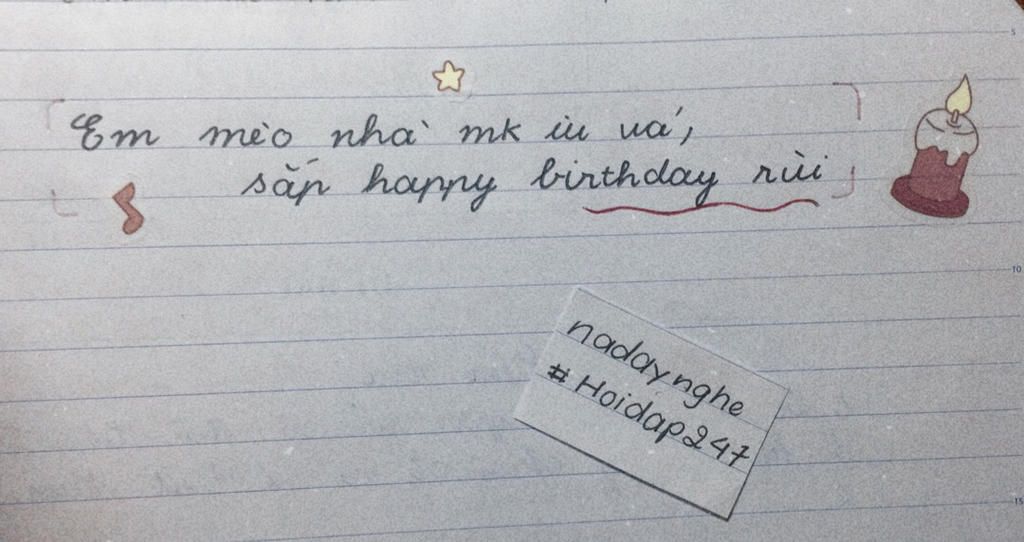 Em mèo nhà mk iu uá,
sắp happy birthday rùi
nadaynghe
#Hoidap247
5
10
15